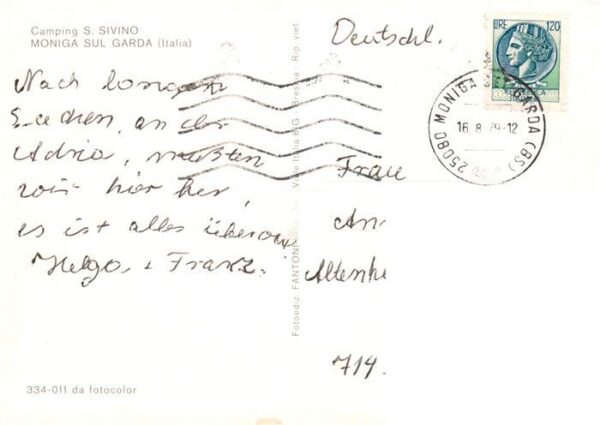 Camping S. SIVINO
MONIGA SUL GARDA (Italia)
Nach langem
Suchen, an der
Adria, mußten
wir hier her,
es ist alles überaus
Helga + Franz.
334-011 da fotocolor
Fotoediz. FANTONI
Brescia - Rip. viet.
Deutschl.
LIRE 120
25080 MONIGA GARDA (BS)
16.8.79-12
Frau
An
Altenhe
714.